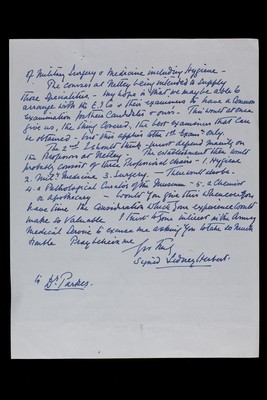 of Military Surgery & Medicine including Hygiene -
The courses at Netley being intended to supply
those specialities - My hope is that we may be able to
arrange with the E I Co & their examiners to have a Common
examination for their Candidates & ours. This would at once
give us, the thing Covered, the best examiners that can
be obtained - but this applies to the 1st Exam: only.
The 2nd I should think must depend mainly on
the Professors at Netley - The establishment there would
probably consist of three Professorial chairs - 1. Hygiene
2. Mil: Medicine 3. Surgery. - There would also be
4. a Pathological Curator of the Museum - 5. a Chemist
or Apothecary - Would you give this whenever you
have time the consideration which your experience would
make so Valuable I trust to your interest in the Army
Medical Service to excuse me asking you to take so much
trouble Pray believe me
Yrs truly
Signed Sidney Herbert.
to Dr Parkes.